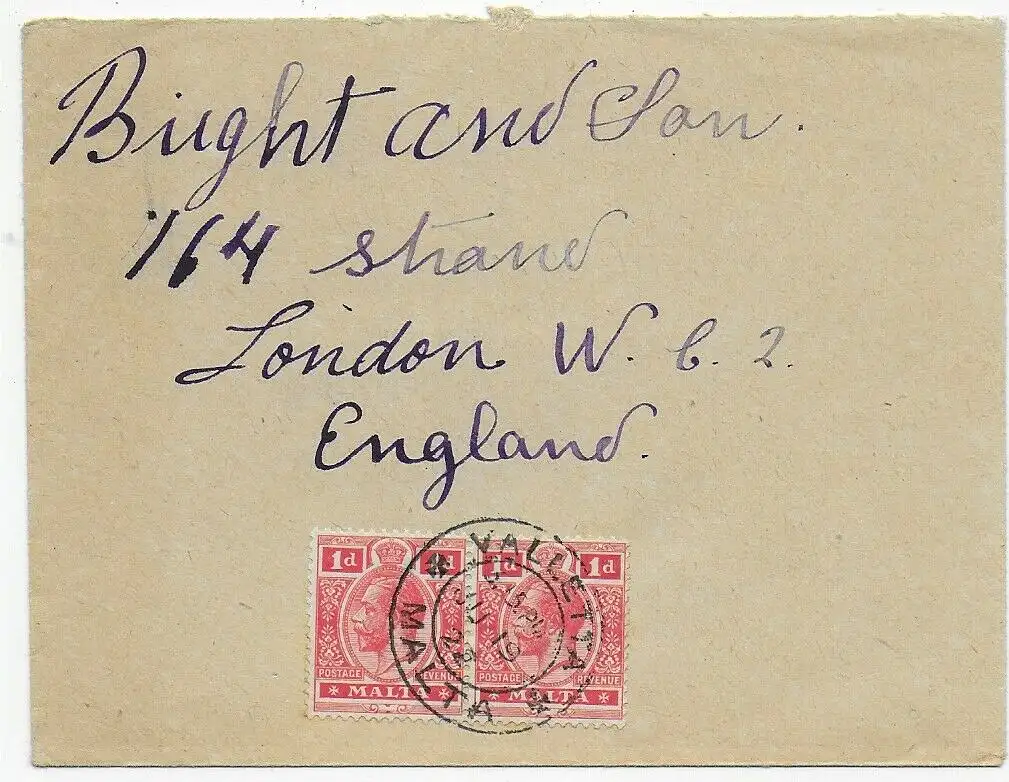 Bright and Son.
164 strand
London W. C. 2.
England.
1d 1d
1d 1d
POSTAGE REVENUE
POSTAGE REVENUE
MALTA
MALTA
VALLETTA
MALTA